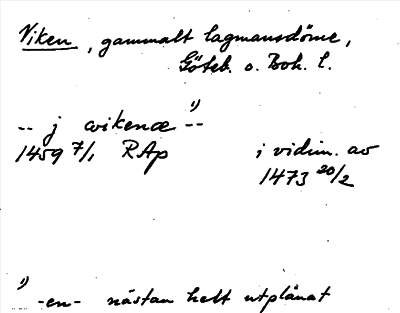 Viken, gammalt lagmansdöme,
Göteb. o. Boh. l.
-- j wikenæ 1) --
1459 7/1 RAp i vidim. av
1473 20/2
1) -en- nästan helt utplånat